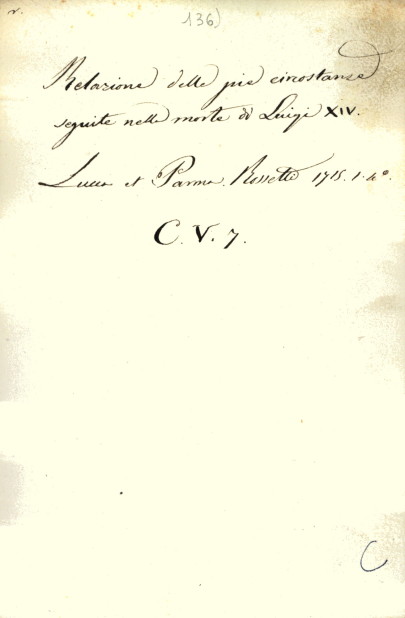 r.
136)
Relazione delle pie circostanze
seguite nella morte di Luigi XIV.
Lucca et Parma. Rossetti 1715. 1. 4º.
C. V. 7.
C